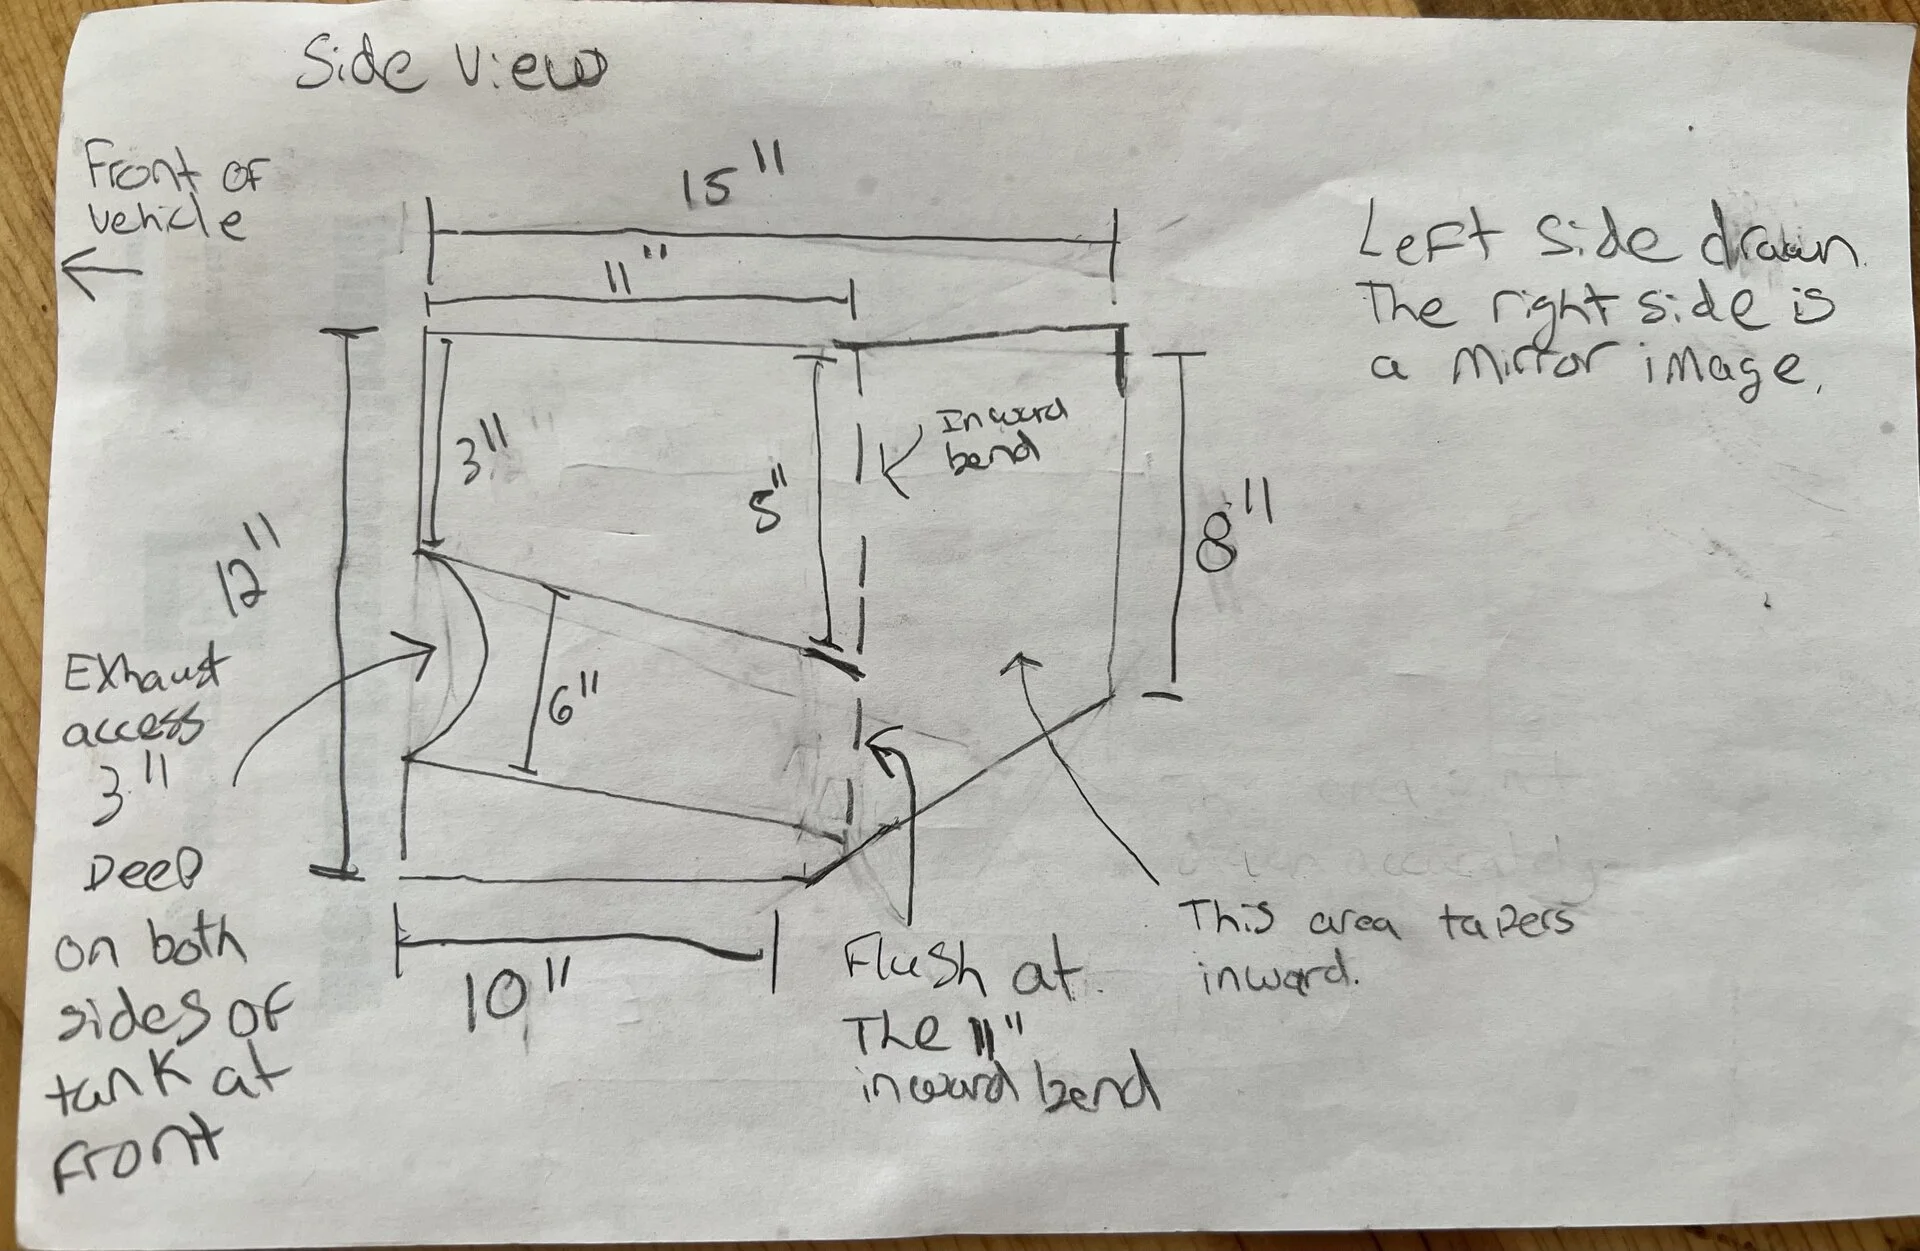 Side View
Front of
vehicle
15"
11"
Left side drawn.
The right side is
a mirror image.
3"
5"
Inward
bend
8"
12"
6"
Exhaust
access
3"
Deep
on both
sides of
tank at
front
10"
Flush at
The 11"
inward bend
This area tapers
inward.